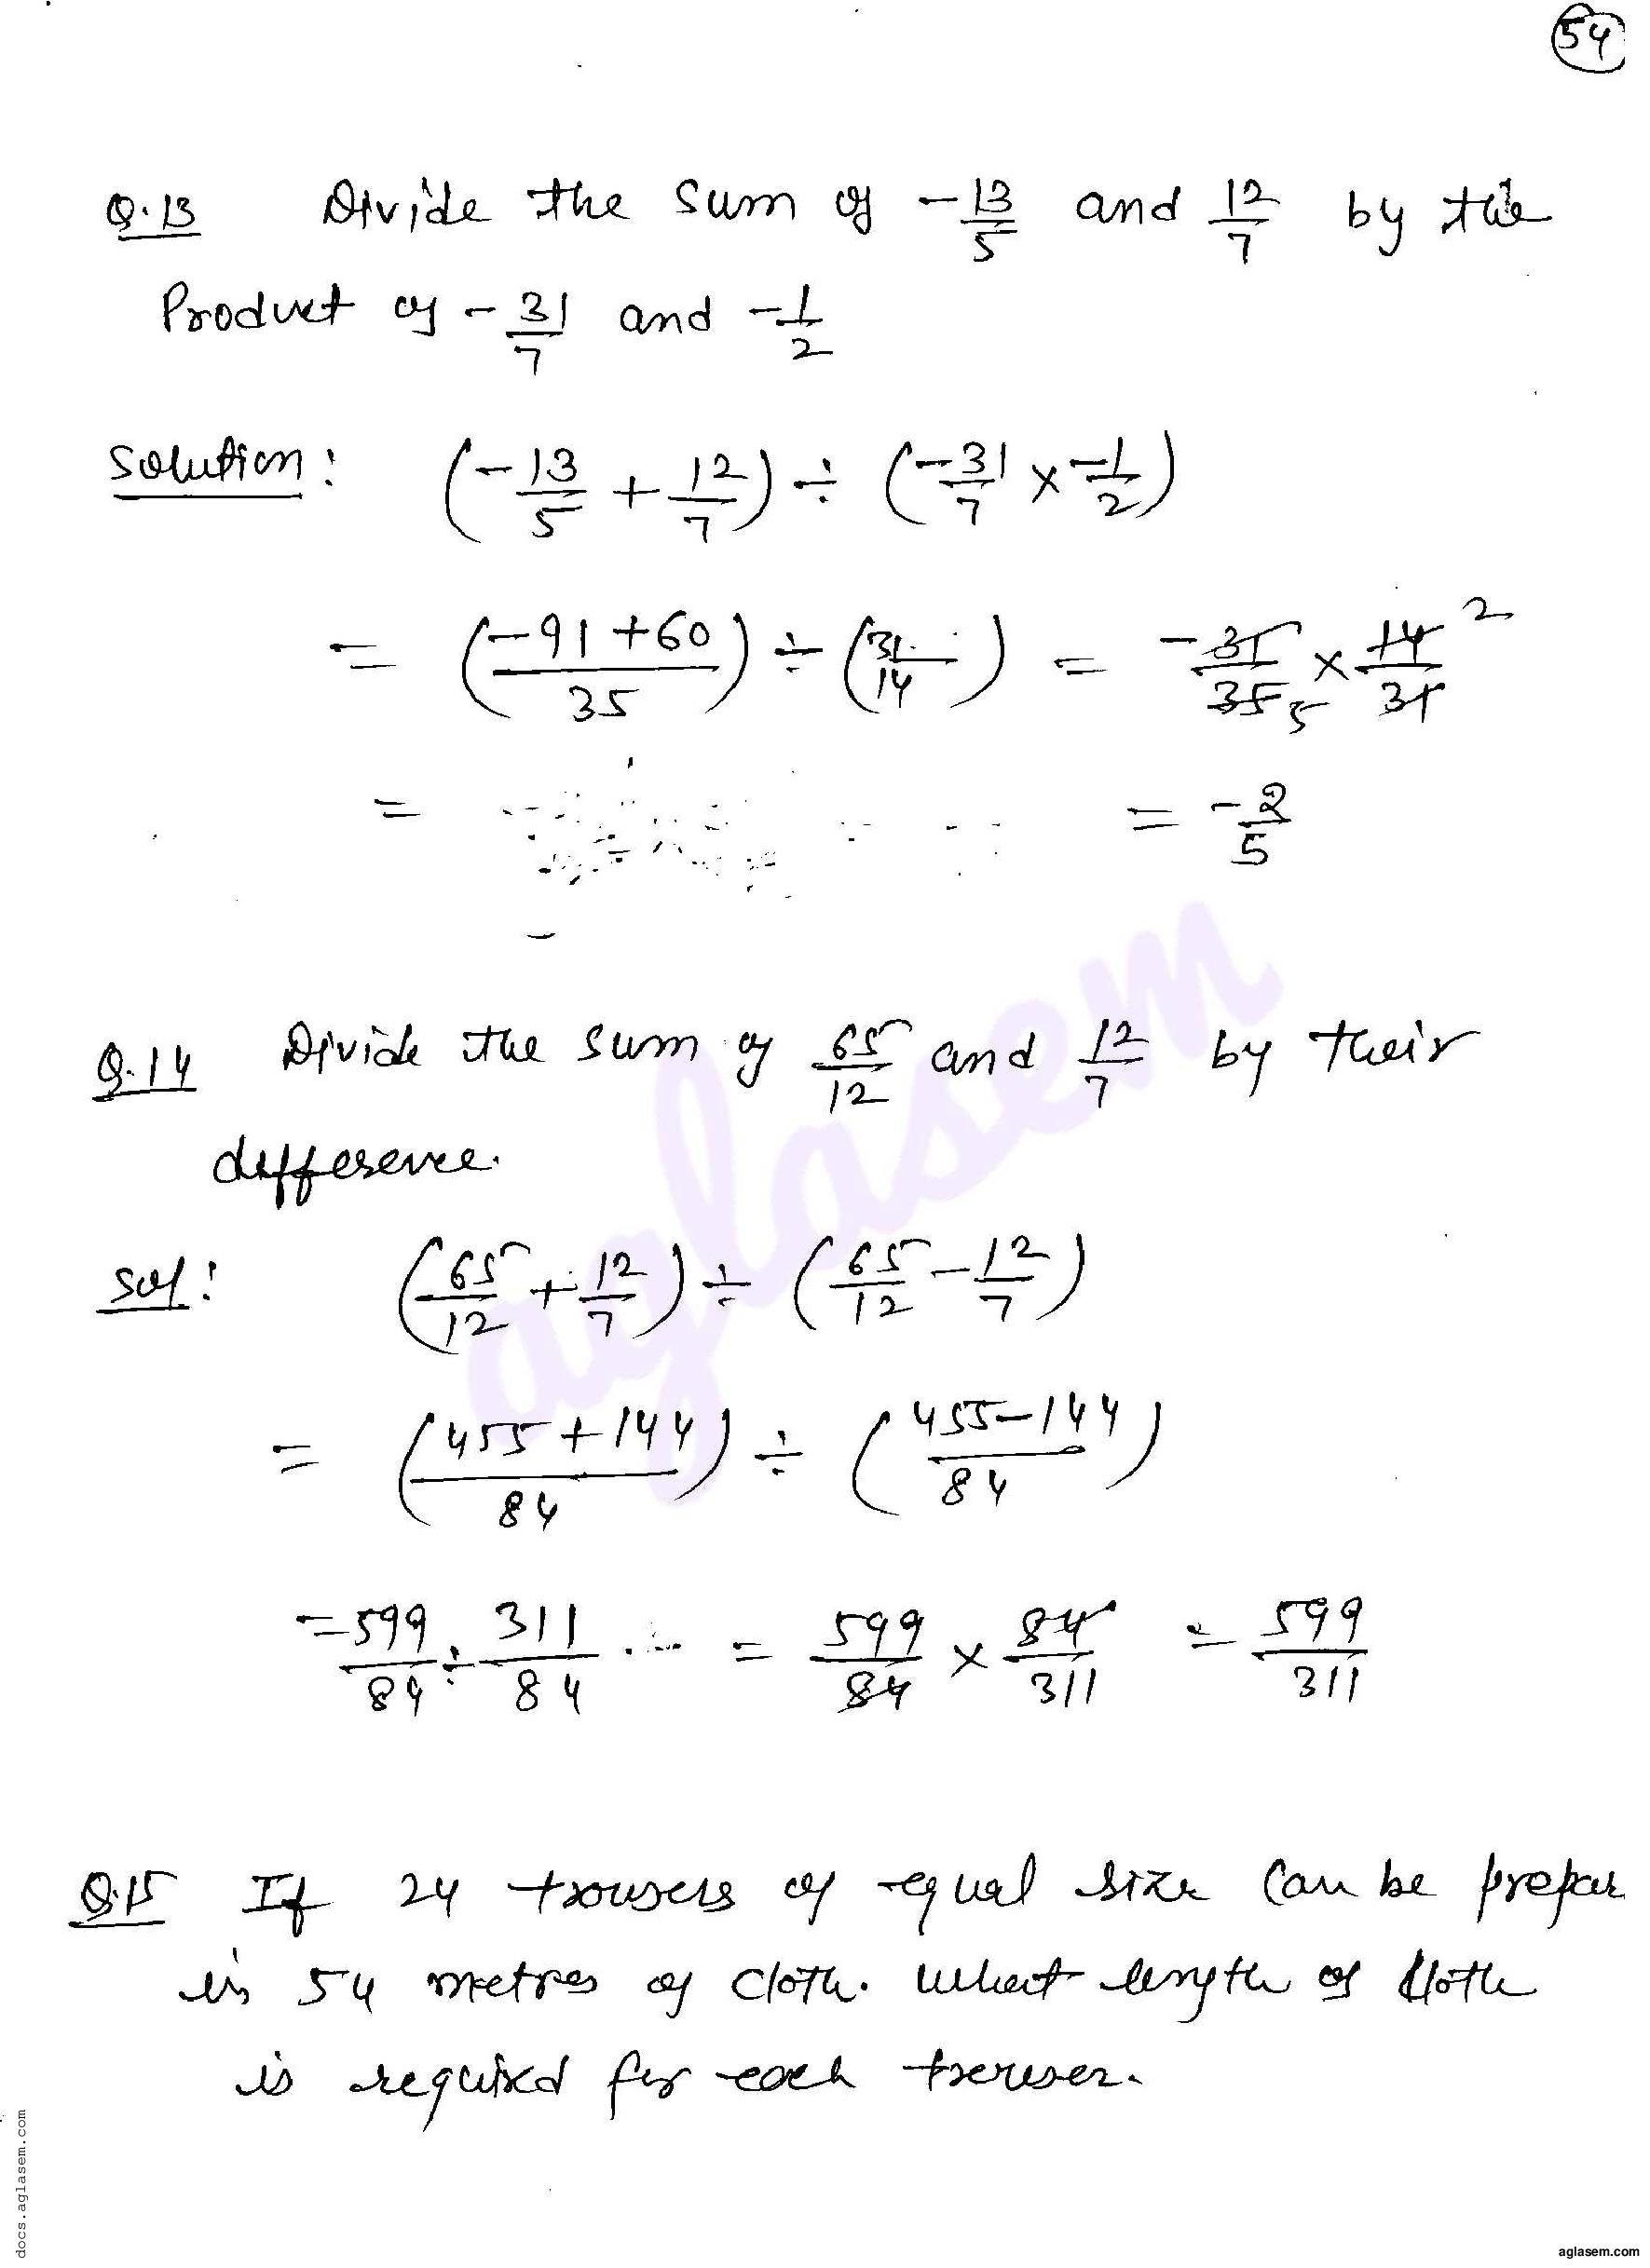 54
Q.13 Divide the sum of -13/5 and 12/7 by the
Product of -31/7 and -1/2
Solution: (-13/5 + 12/7) ÷ (-31/7 × -1/2)
= (-91+60/35) ÷ (31/14) = -31/35 5 × 14/31 2
= = -2/5
Q.14 Divide the sum of 65/12 and 12/7 by their
difference.
Sol: (65/12 + 12/7) ÷ (65/12 - 12/7)
= (455+144/84) ÷ (455-144/84)
= 599/84 ÷ 311/84 = 599/84 × 84/311 = 599/311
Q.15 If 24 trousers of equal size can be prepar
in 54 metres of cloth. What length of cloth
is required for each trouser.
aglasem
docs.aglasem.com
aglasem.com